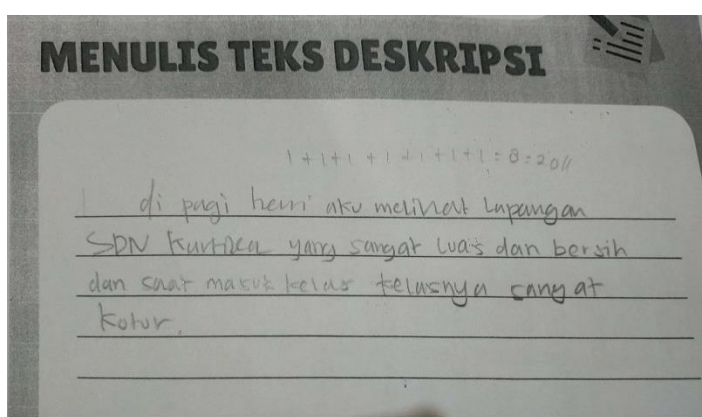 MENULIS TEKS DESKRIPSI
1+1+1+1+1+1+1+1=8=
di pagi hari aku melihat lapangan
SDN Kartika yang sangat luas dan bersih
dan saat masuk kelas kelasnya sangat
kotor.